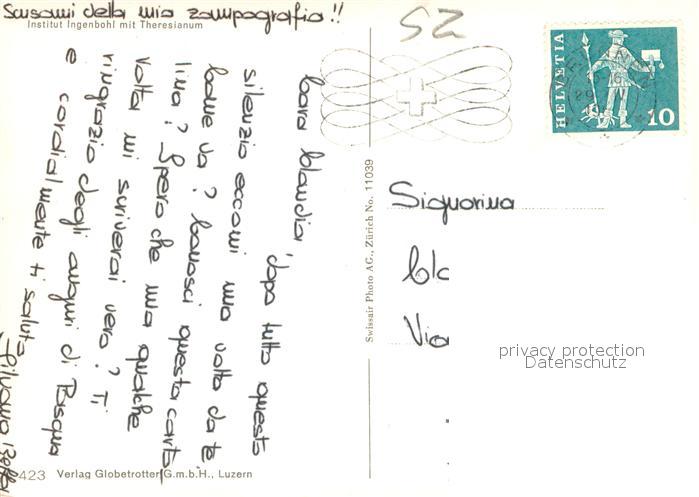 Scusami della mia zampografia!!
Institut Ingenbohl mit Theresianum
Cara Claudia, dopo tutto questo
silenzio eccomi una volta da te
Come va? Conosci questa carto
lina? Spero che una qualche
volta mi scriverai vero? Ti
ringrazio degli auguri di Pasqua
e cordialmente ti saluto
Silvana
Swissair Photo AG., Zürich No. 11039
HELVETIA
10
52
Signorina
Via
privacy protection
Datenschutz
423 Verlag Globetrotter G.m.b.H., Luzern